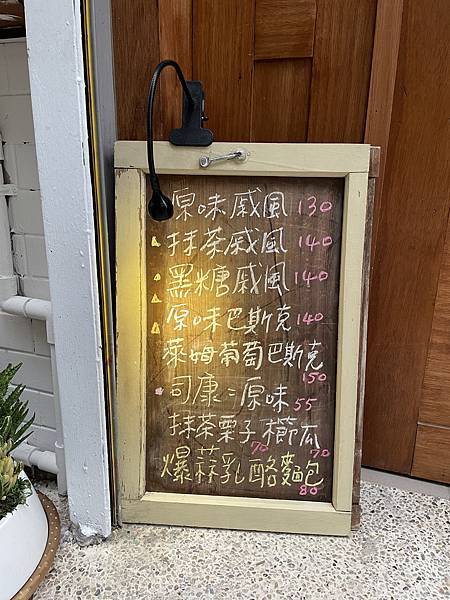 原味戚風 130
抹茶戚風 140
黑糖戚風 140
原味巴斯克 140
萊姆葡萄巴斯克
150
司康:原味 55
抹茶栗子 櫛瓜
70 70
爆蒜乳酪麵包
80